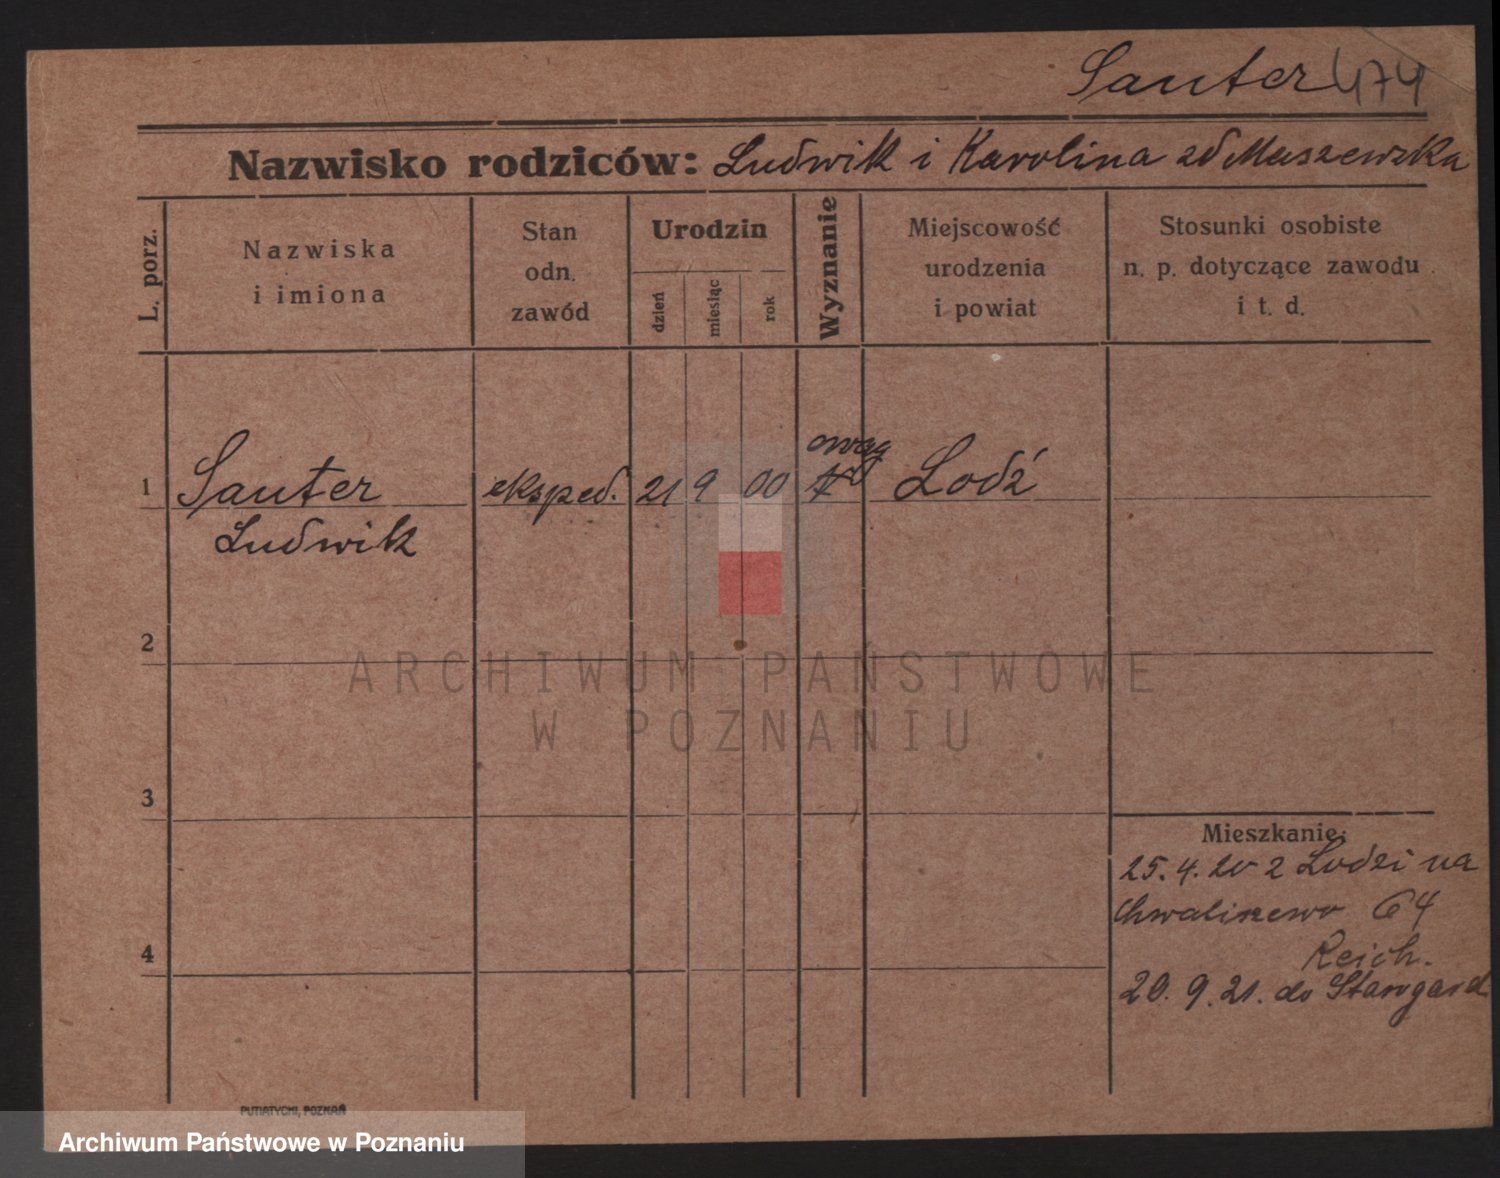 Sauter 474
Nazwisko rodziców: Ludwik i Karolina zd Muszewska
L. porz.
Nazwiska
i imiona
Stan
odn.
zawód
Urodzin
dzień
miesiąc
rok
Wyznanie
Miejscowość
urodzenia
i powiat
Stosunki osobiste
n. p. dotyczące zawodu
i t. d.
ewag
1 Sauter eksped. 21 9 00 Lodź
Ludwik
2
3
4
Mieszkanie:
25.4.20 z Lodzi na
Chwaliszewo 64
Reich.
20.9.21. do Starogard
PUTIATYCKI, POZNAŃ
ARCHIWUM PAŃSTWOWE
W POZNANIU
Archiwum Państwowe w Poznaniu